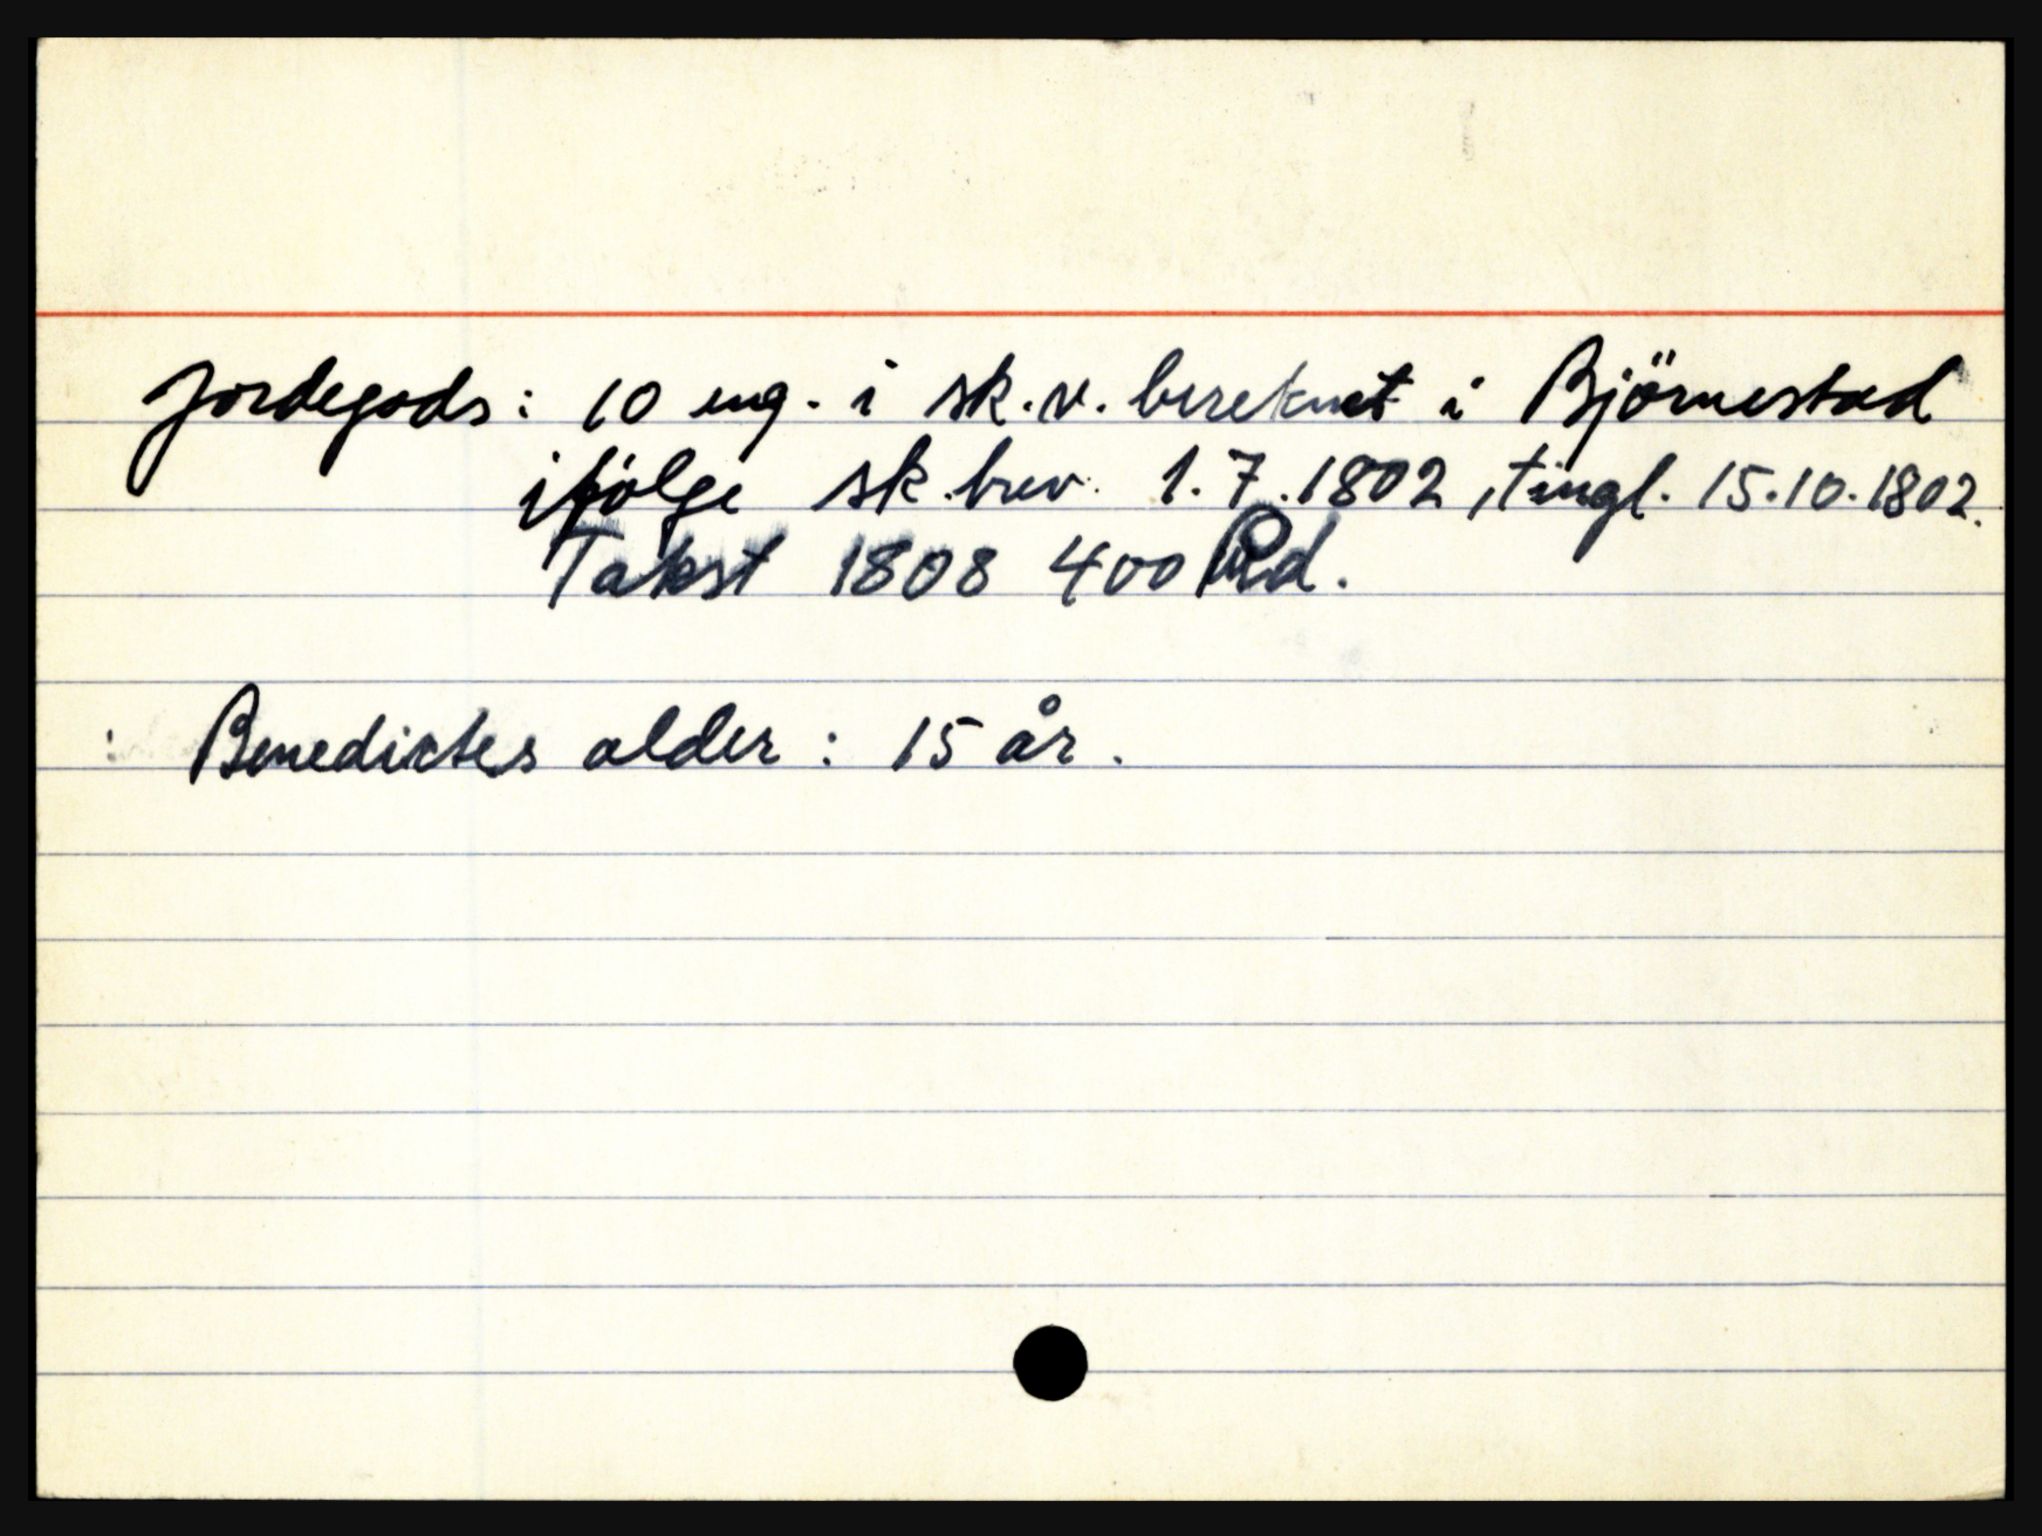 Jordegods: 10 eng. i sk.v. bereknet i Björnestad
ifölge sk.brev. 1.7.1802, tingl. 15.10.1802.
Takst 1808 400 Rd.
Benedictes alder: 15 år.